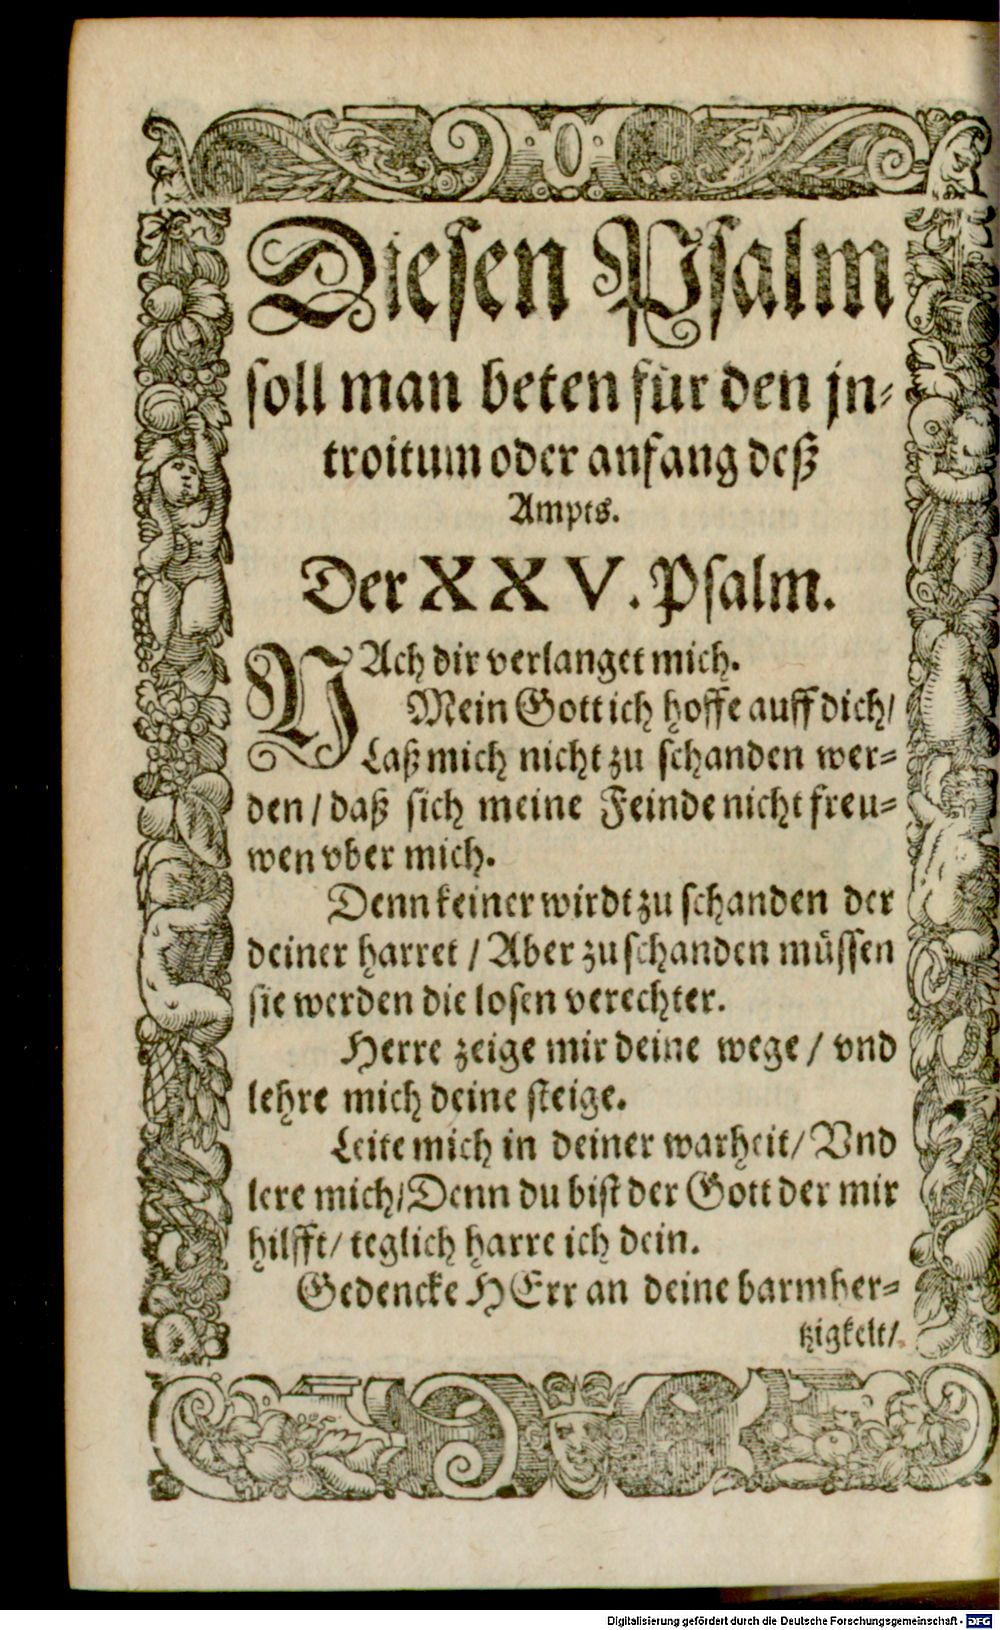 Diesen Psalm
soll man beten für den jn⸗
troitum oder anfang deß
Ampts.
Der XXV. Psalm.
NAch dir verlanget mich.
Mein Gott ich hoffe auff dich/
Laß mich nicht zu schanden wer⸗
den/ daß sich meine Feinde nicht freu⸗
wen vber mich.
Denn keiner wirdt zu schanden der
deiner harret / Aber zu schanden müssen
sie werden die losen verechter.
Herre zeige mir deine wege / vnd
lehre mich deine steige.
Leite mich in deiner warheit/ Vnd
lere mich/ Denn du bist der Gott der mir
hilfft/ teglich harre ich dein.
Gedencke HErr an deine barmher⸗
tzigkeit/
Digitalisierung gefördert durch die Deutsche Forschungsgemeinschaft - DFG